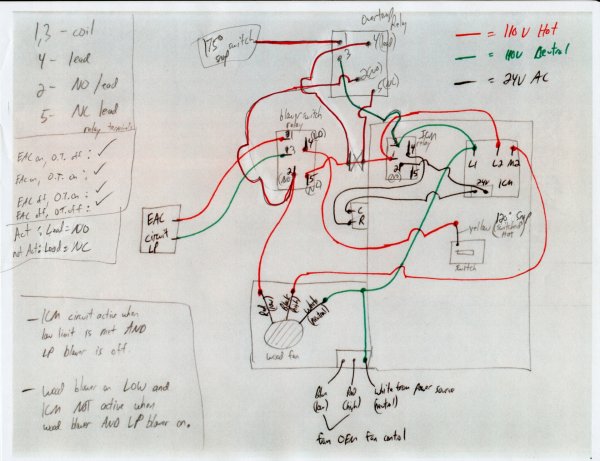 1,3 - coil
4 - lead
2 - NO/lead
5 - NC lead
relay terminals
EAC on, O.T. off : ✓
EAC on, O.T. on : ✓
EAC off, O.T. on : ✓
EAC off, O.T. off : ✓
Act : Load = NO
not Act : Load = NC
175° snap switch
Relay
1
3
4 (load)
2 (NO)
5 (NC)
= 110V Hot
= 110V Neutral
= 24V AC
blower switch
relay
1
3
4
2
(NO)
5
(NC)
ICM
relay
1
3
4
2
5
L1
L2
M2
24V
ICM
C
R
EAC
circuit
LP
120° snap
yellow (switched
Hot)
switch
Red
Black
White
(neutral)
wood fan
Blue
(low)
Red
(high)
White from power
source
(neutral)
from OEM fan control
- ICM circuit active when
low limit is met AND
LP blower is off.
- wood blower on LOW and
ICM NOT active when
wood blower AND LP blower on.